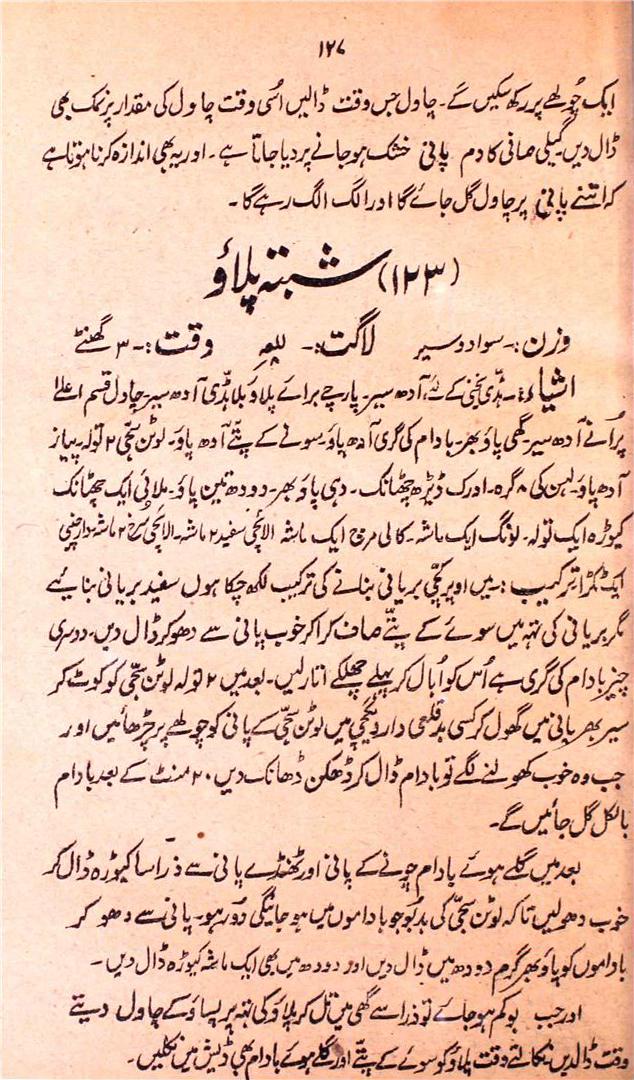 ۱۲۷
ایک چُولھے پر رکھ سکیں گے۔ چاول جس وقت ڈالیں اُسی وقت چاول کی مقدار پر نمک بھی
ڈال دیں گیلی صافی کا دم پانی خشک ہو جانے پر دیا جاتا ہے۔ اور یہ بھی اندازہ کرنا ہوتا ہے
کہ اتنے پانی پر چاول گل جائے گا اور الگ الگ رہے گا۔
(۱۲۳) شبتہ پلاؤ
وزن:۔ سوا دو سیر لاگت:۔ وقت:۔ ۳ گھنٹے
اشیاء:۔ ہڈی یخنی کے لئے، آدھ سیر۔ پارچے برائے پلاؤ بلا ہڈی آدھ سیر۔ چاول قسم اعلا
پُرانے آدھ سیر۔ گھی پاؤ بھر۔ بادام کی گری آدھ پاؤ۔ سونے کے پتّے آدھ پاؤ۔ لوٹن سجّی ۲ تولہ۔ پیاز
آدھ پاؤ۔ لہسن کی ۸ گرہ۔ ادرک ڈیڑھ چھٹانک۔ دہی پاؤ بھر۔ دودھ تین پاؤ۔ ملائی ایک چھٹانک
کیوڑہ ایک تولہ۔ لونگ ایک ماشہ۔ کالی مرچ ایک ماشہ الائچی سفید ۲ ماشہ۔ الائچی سُرخ ۲ ماشہ دارچینی
ایک ٹکڑا ترکیب:۔ میں اوپر کچّی بریانی بنانے کی ترکیب لکھ چکا ہوں سفید بریانی بنائیے
مگر بریانی کی تہہ میں سوئے کے پتّے صاف کرا کر خوب پانی سے دھو کر ڈال دیں۔ دوسری
چیز بادام کی گری ہے اُس کو اُبال کر پہلے چھلکے اتار لیں۔ بعد میں ۲ تولہ لوٹن سجّی کو کوٹ کر
سیر بھر پانی میں گھول کر کسی بد قلعی دار دیگچی میں لوٹن سجّی کے پانی کو چولھے پر چڑھائیں اور
جب وہ خوب کھولنے لگے تو بادام ڈال کر ڈھکن ڈھانک دیں ۲۰ منٹ کے بعد بادام
بالکل گل جائیں گے۔
بعد میں گلے ہوئے بادام چونے کے پانی اور ٹھنڈے پانی سے ذرا سا کیوڑہ ڈال کر
خوب دھولیں تاکہ لوٹن سجّی کی بدبُو جو باداموں میں ہو جائیگی دُور ہو۔ پانی سے دھو کر
باداموں کو پاؤ بھر گرم دودھ میں ڈال دیں اور دودھ میں بھی ایک ماشہ کیوڑہ ڈال دیں۔
اور جب بو کم ہو جائے تو ذرا سے گھی میں تل کر پلاؤ کی تہہ پر پساؤ کے چاول دیتے
وقت ڈالدیں۔ نکالتے وقت پلاؤ کو سوئے کے پتّے اور گلے ہوئے بادام بھی ڈیش میں نکلیں۔